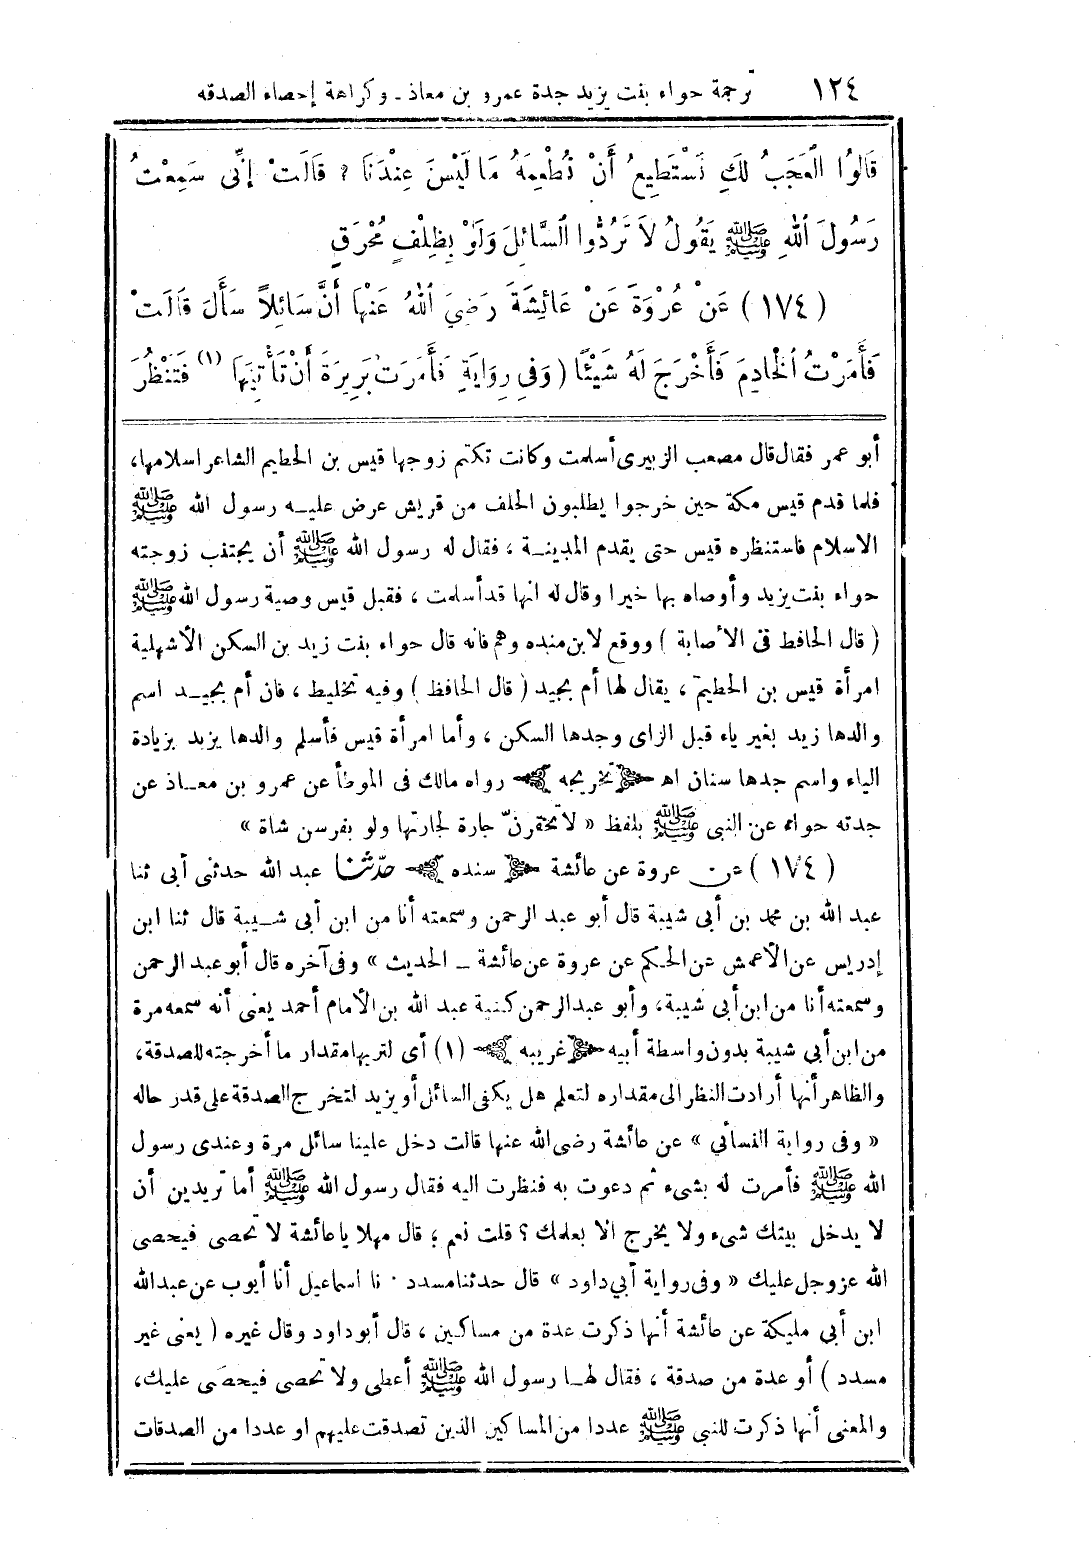 ١٢٤ ترجمة حواء بنت يزيد جدة عمرو بن معاذ - وكراهة إحصاء الصدقه
قَالُوا الْعَجَبُ لَكِ نَسْتَطِيعُ أَنْ نُطْعِمَهُ مَا لَيْسَ عِنْدَنَا ؟ قَالَتْ إِنِّى سَمِعْتُ
رَسُولَ اللهِ ﷺ يَقُولُ لاَ تَرُدُّوا السَّائِلَ وَلَوْ بِظِلْفٍ مُحْرَقٍ
( ١٧٤ ) عَنْ عُرْوَةَ عَنْ عَائِشَةَ رَضِيَ اللهُ عَنْهَا أَنَّ سَائِلاً سَأَلَ قَالَتْ
فَأَمَرْتُ الْخَادِمَ فَأَخْرَجَ لَهُ شَيْئًا ( وَفِى رِوَايَةٍ فَأَمَرَتْ بَرِيرَةَ أَنْ تَأْتِيَهَا (١) فَتَنْظُرَ
أبو عمر فقال قال مصعب الزبيرى أسلمت وكانت تكتم زوجها قيس بن الخطيم الشاعر اسلامها،
فلما قدم قيس مكة حين خرجوا يطلبون الحلف من قريش عرض عليـه رسول الله ﷺ
الاسلام فاستنظره قيس حتى يقدم المدينـة ، فقال له رسول الله ﷺ أن يجتنب زوجته
حواء بنت يزيد وأوصاه بها خيرا وقال له انها قد أسلمت ، فقبل قيس وصية رسول الله ﷺ
( قال الحافظ فى الأصابة ) ووقع لابن منده وهم فانه قال حواء بنت زيد بن السكن الأشهلية
امرأة قيس بن الخطيم ، يقال لها أم بجيد ( قال الحافظ ) وفيه تخليط ، فان أم بجيـد اسم
والدها زيد بغير ياء قبل الزاى وجدها السكن ، وأما امرأة قيس فأسلم والدها يزيد بزيادة
الياء واسم جدها سنان اهـ ﴿ تخريجه ﴾ رواه مالك فى الموطأ عن عمرو بن معـاذ عن
جدته حواء عن النبى ﷺ بلفظ « لا تحقرنّ جارة لجارتها ولو بفرسن شاة »
( ١٧٤ ) عن عروة عن عائشة ﴿ سنده ﴾ حدّثنا عبد الله حدثنى أبى ثنا
عبد الله بن محمد بن أبى شيبة قال أبو عبد الرحمن وسمعته أنا من ابن أبى شـيبة قال ثنا ابن
إدريس عن الأعمش عن الحكم عن عروة عن عائشة ـ الحديث » وفى آخره قال أبو عبد الرحمن
وسمعته أنا من ابن أبى شيبة ، وأبو عبد الرحمن كنية عبد الله بن الأمام أحمد يعنى أنه سمعه مرة
من ابن أبي شيبة بدون واسطة أبيه ﴿ غريبه ﴾ (١) أى لتريها مقدار ما أخرجته للصدقة،
والظاهر أنها أرادت النظر الى مقداره لتعلم هل يكفى السائل أو يزيد لتخرج الصدقة على قدر حاله
« وفى رواية النسأئي » عن عائشة رضى الله عنها قالت دخل علينا سائل مرة وعندى رسول
الله ﷺ فأمرت له بشىء ثم دعوت به فنظرت اليه فقال رسول الله ﷺ أما تريدين أن
لا يدخل بيتك شىء ولا يخرج الا بعلمك ؟ قلت نعم ، قال مهلا يا عائشة لا تحصى فيحصى
الله عز وجل عليك « وفى رواية أبي داود » قال حدثنا مسدد . نا اسماعيل أنا أيوب عن عبد الله
ابن أبي مليكة عن عائشة أنها ذكرت عدة من مساكين ، قال أبو داود وقال غيره ( يعنى غير
مسدد ) أو عدة من صدقة ، فقال لهـا رسول الله ﷺ أعطى ولا تحصى فيحصَى عليك،
والمعنى أنها ذكرت للنبي ﷺ عددا من المساكين الذين تصدقت عليهم او عددا من الصدقات